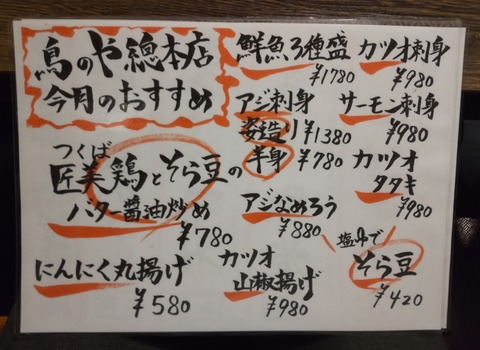 鳥のや總本店
今月のおすすめ
つくば
匠美鶏とそら豆の
バター醬油炒め
¥780
にんにく丸揚げ
¥580
鮮魚3種盛
¥1780
アジ刺身
姿造り¥1380
半身¥780
アジなめろう
¥880
カツオ
山椒揚げ
¥980
カツオ刺身
¥980
サーモン刺身
¥980
カツオ
タタキ
¥980
塩ゆで
そら豆
¥420